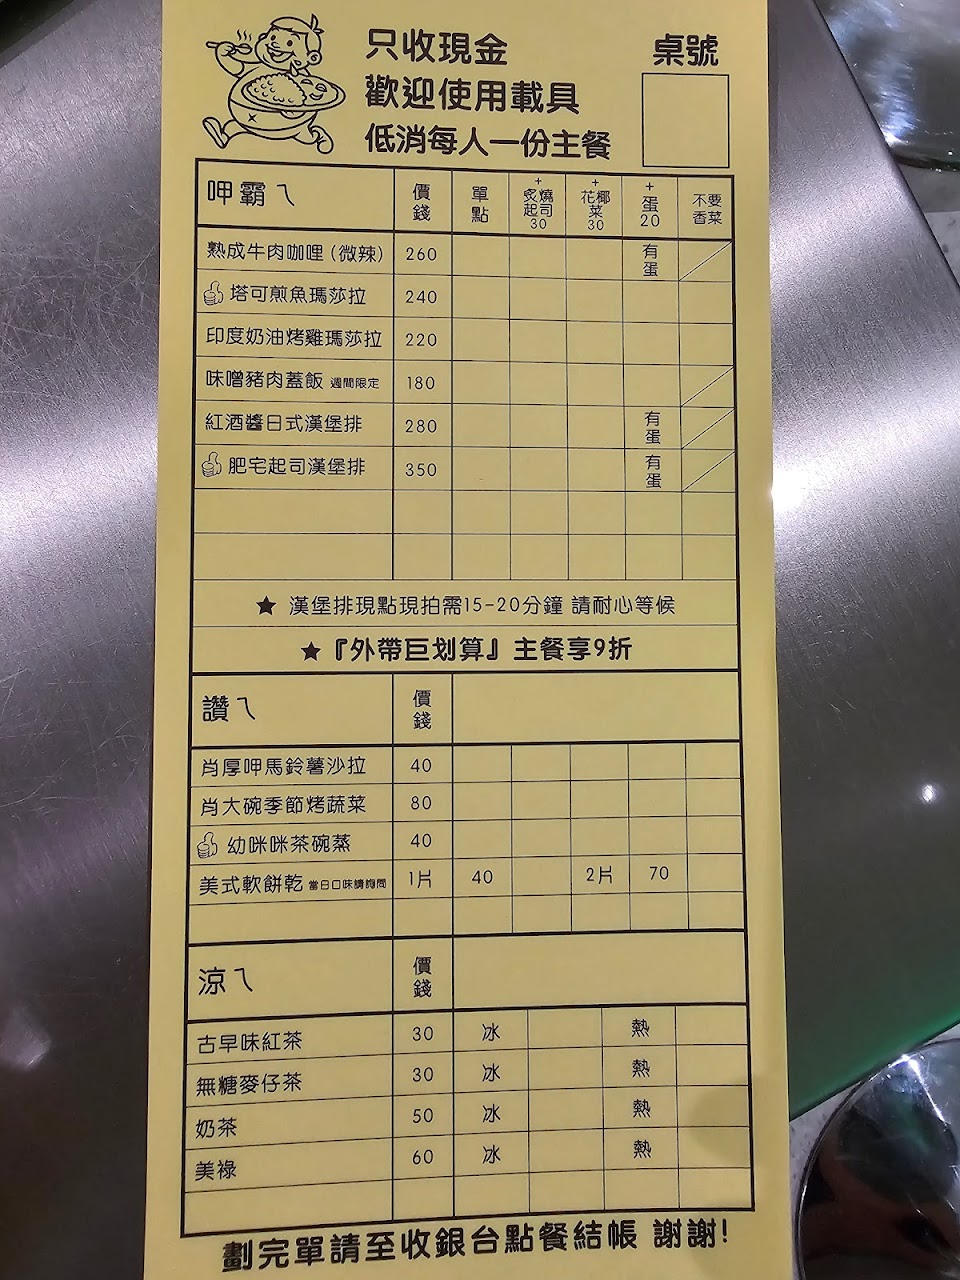 只收現金
歡迎使用載具
低消每人一份主餐
桌號
呷霸ㄟ 價錢 單點 +炙燒起司30 +花椰菜30 +蛋20 不要香菜
熟成牛肉咖哩(微辣) 260 有蛋
塔可煎魚瑪莎拉 240
印度奶油烤雞瑪莎拉 220
味噌豬肉蓋飯 週間限定 180
紅酒醬日式漢堡排 280 有蛋
肥宅起司漢堡排 350 有蛋
★ 漢堡排現點現拍需15-20分鐘 請耐心等候
★『外帶巨划算』主餐享9折
讚ㄟ 價錢
肖厚呷馬鈴薯沙拉 40
肖大碗季節烤蔬菜 80
幼咪咪茶碗蒸 40
美式軟餅乾 當日口味請詢問 1片 40 2片 70
涼ㄟ 價錢
古早味紅茶 30 冰 熱
無糖麥仔茶 30 冰 熱
奶茶 50 冰 熱
美祿 60 冰 熱
劃完單請至收銀台點餐結帳 謝謝!